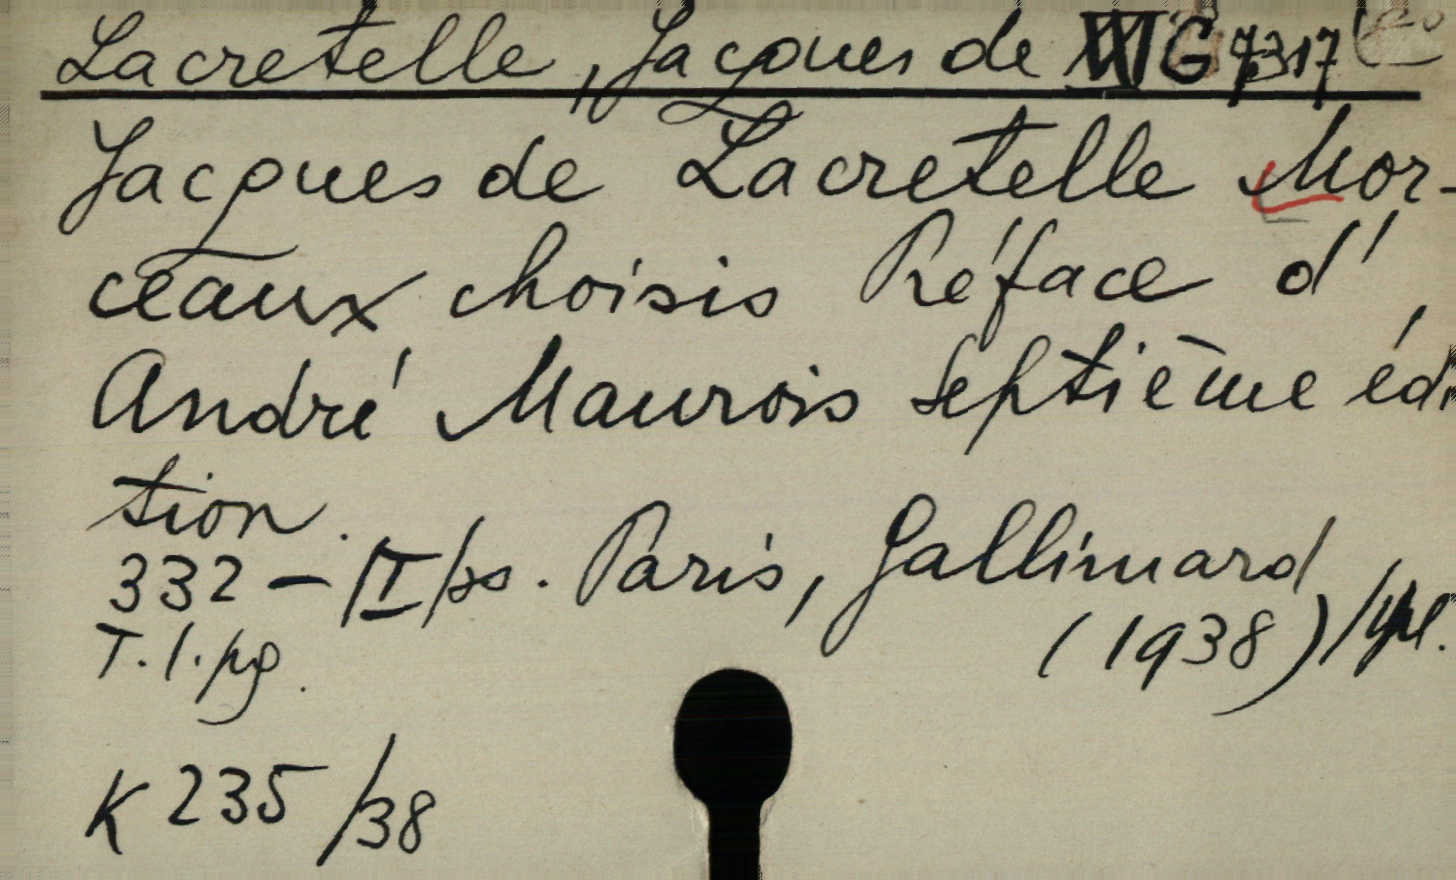 Lacretelle, Jacques de XXI G 7317
Jacques de Lacretelle Mor-
ceaux choisis Préface d'
André Maurois Septième édi
tion.
332 - /II/ ps. Paris, Gallimard
T. l. pg. (1938)
K 235/38